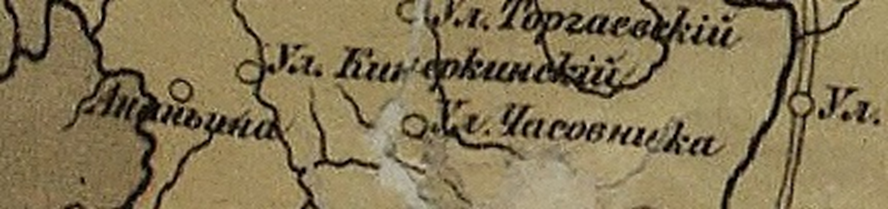 Ул. Торгаевскій
Ул. Кинчеркинскій
Ананьина
Ул. Часовничка
Ул.